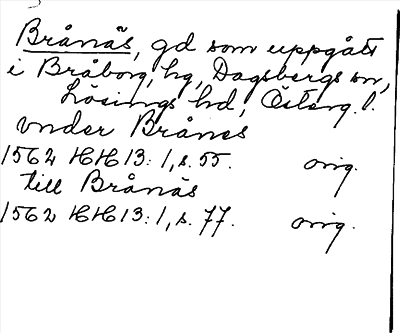 Brånäs, gd som uppgått
i Bråborg, hg, Dagsbergs sn,
Lösings hd, Österg. l.
under Brånes
1562 HH 13:1, s. 55. orig.
till Brånäs
1562 HH 13:1, s. 77. orig.